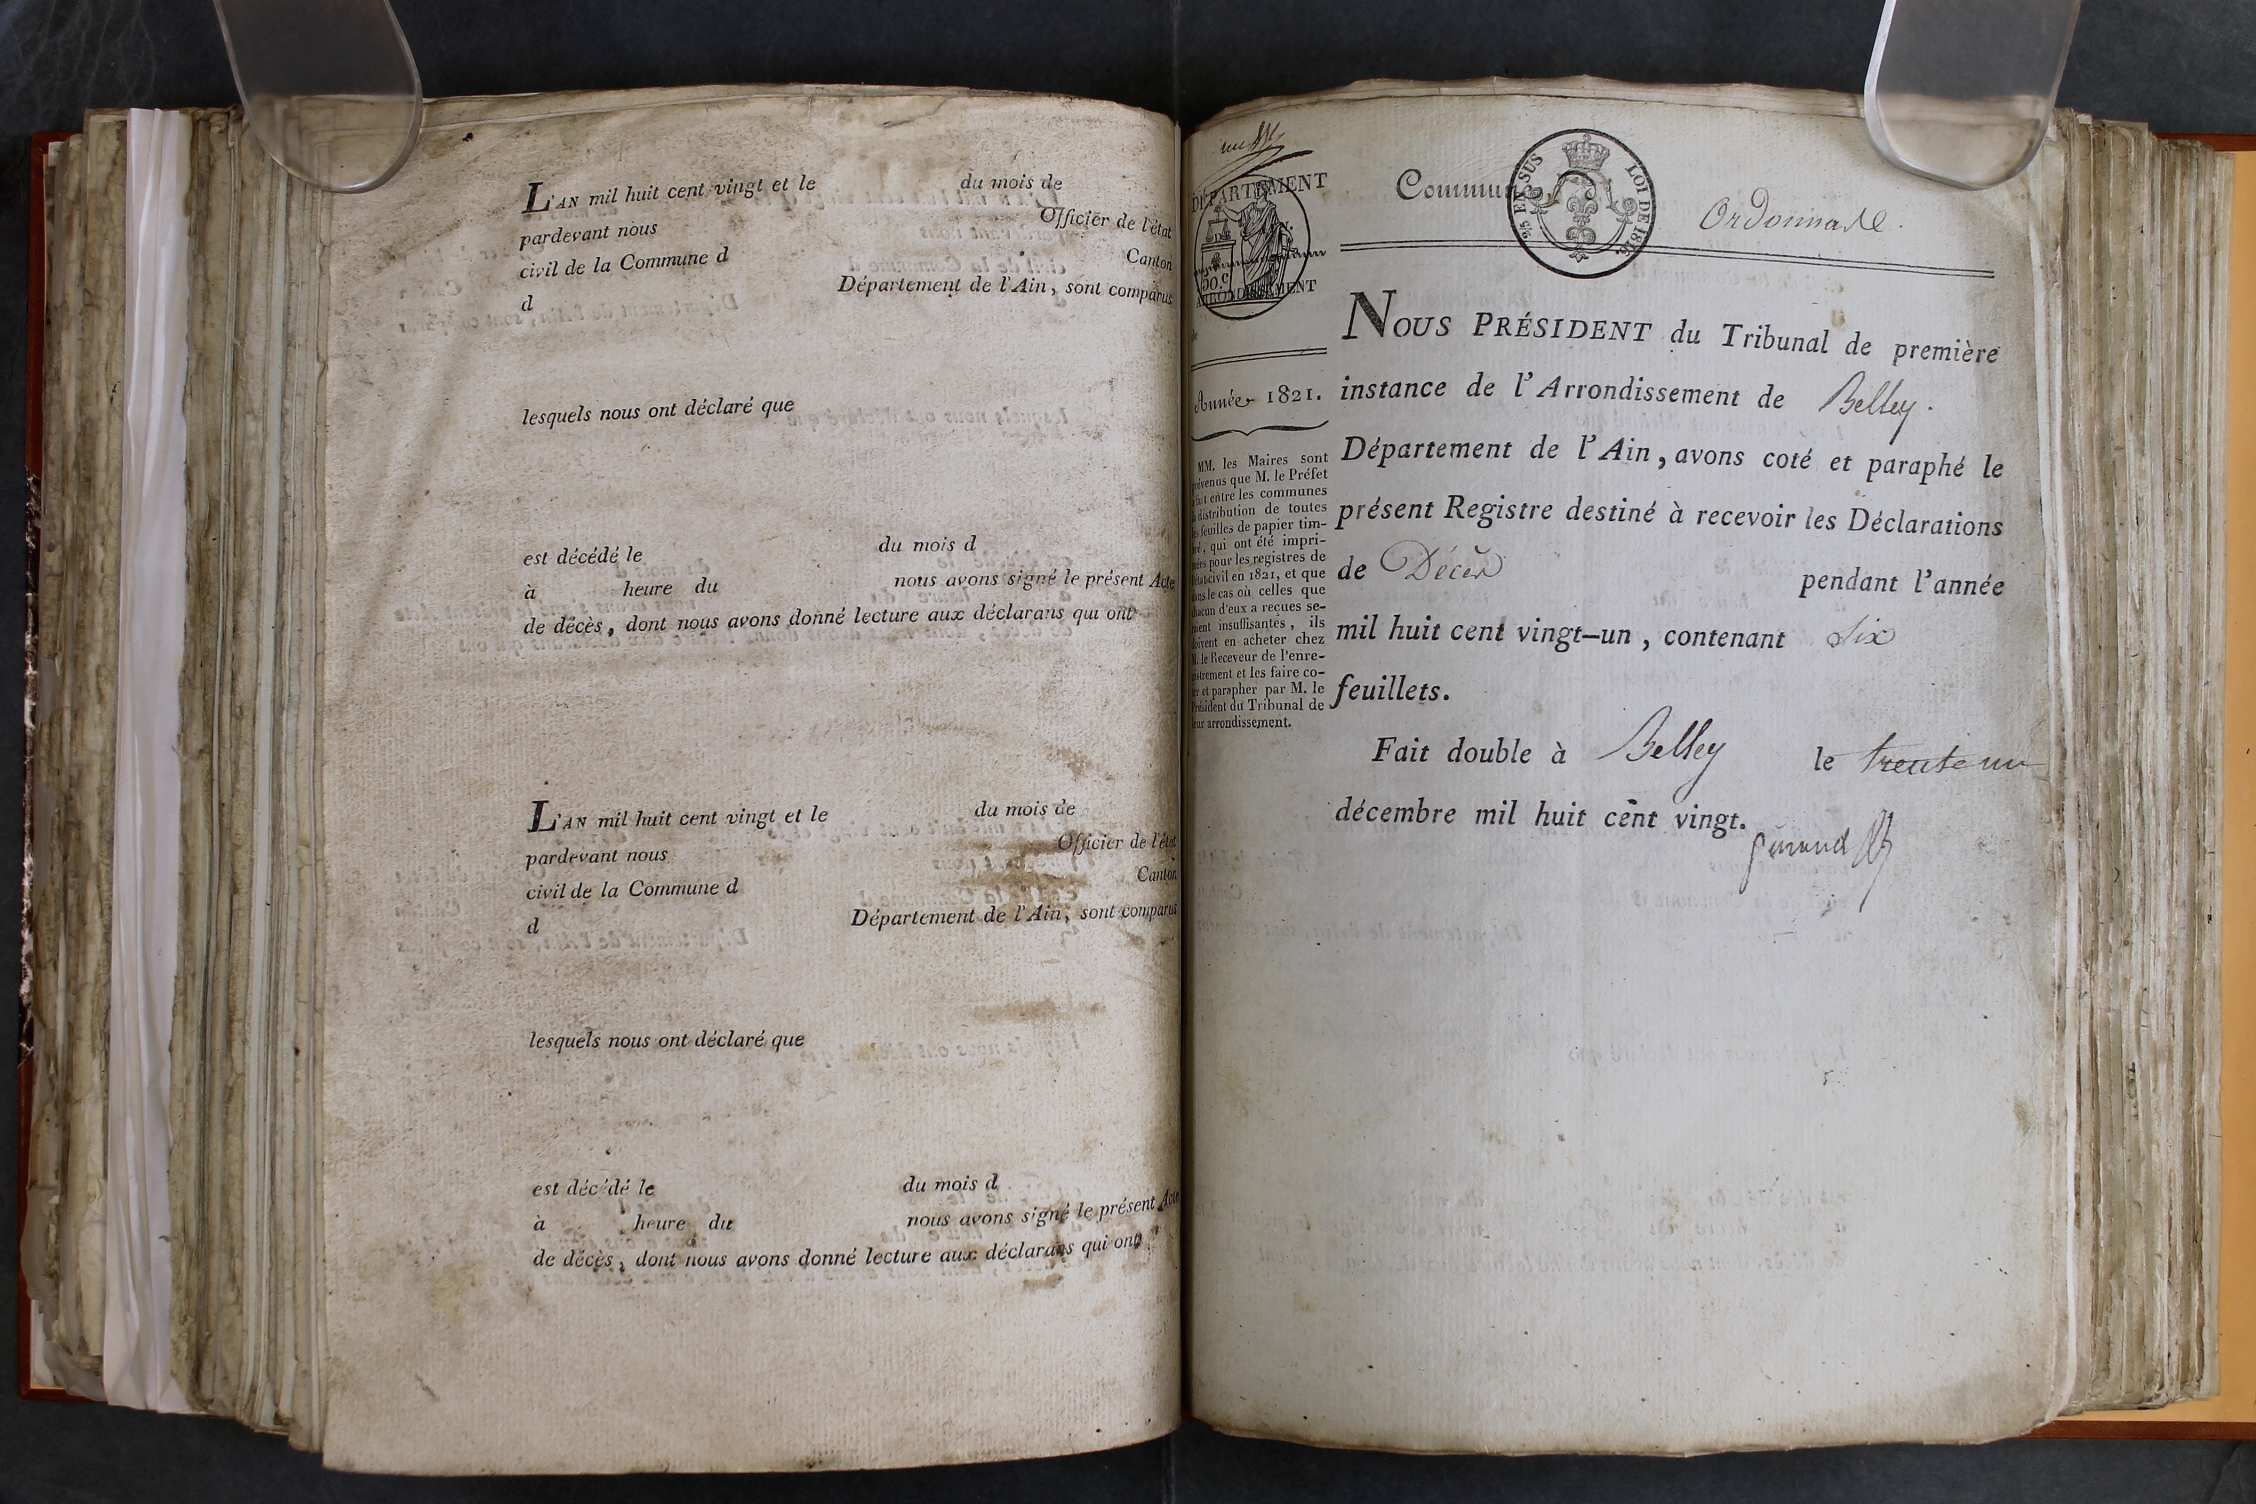 L'AN mil huit cent vingt et le du mois de
pardevant nous Officier de l'état
civil de la Commune d Canton
d Département de l'Ain, sont comparus
lesquels nous ont déclaré que
est décédé le du mois d
à heure du nous avons signé le présent Acte
de décès, dont nous avons donné lecture aux déclarans qui ont
L'AN mil huit cent vingt et le du mois de
pardevant nous Officier de l'état
civil de la Commune d Canton
d Département de l'Ain, sont comparus
lesquels nous ont déclaré que
est décédé le du mois d
à heure du nous avons signé le présent Acte
de décès, dont nous avons donné lecture aux déclarans qui ont
DÉPARTEMENT
50.c
ARRONDISSEMENT
Année 1821.
MM. les Maires sont
prévenus que M. le Préfet
a fait entre les communes
la distribution de toutes
les feuilles de papier tim-
bré, qui ont été impri-
mées pour les registres de
l'état civil en 1821, et que
dans le cas où celles que
chacun d'eux a reçues se-
roient insuffisantes, ils
doivent en acheter chez
M. le Receveur de l'enre-
gistrement et les faire co-
ter et parapher par M. le
Président du Tribunal de
leur arrondissement.
Commune Ordonnaz
25 EN SUS LOI DE 1816.
NOUS PRÉSIDENT du Tribunal de première
instance de l'Arrondissement de Belley.
Département de l'Ain, avons coté et paraphé le
présent Registre destiné à recevoir les Déclarations
de Décès pendant l'année
mil huit cent vingt-un, contenant six
feuillets.
Fait double à Belley le trente un
décembre mil huit cent vingt.